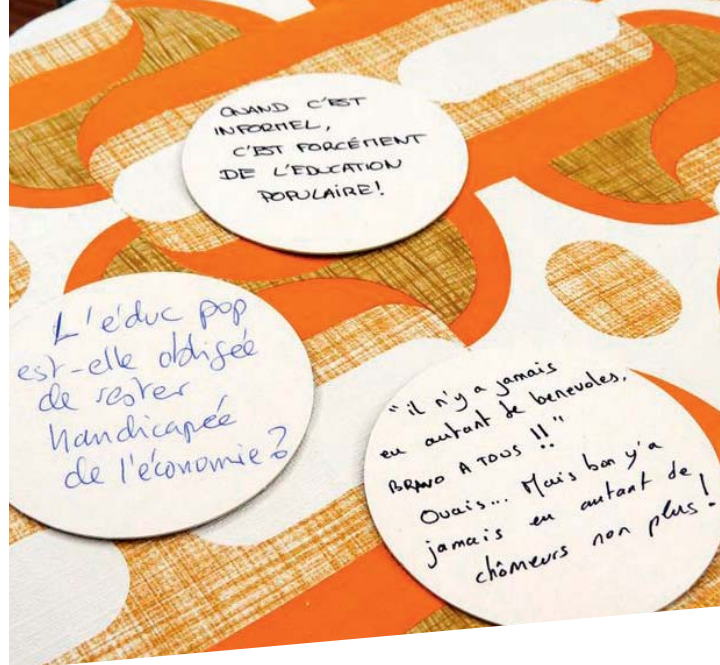 QUAND C'EST
INFORMEL,
C'EST FORCÉMENT
DE L'EDUCATION
POPULAIRE!
L'éduc pop
est-elle obligée
de rester
handicapée
de l'économie?
"il n'y a jamais
eu autant de benevoles.
BRAVO A TOUS !!"
Ouais... Mais bon y'a
jamais eu autant de
chômeurs non plus!